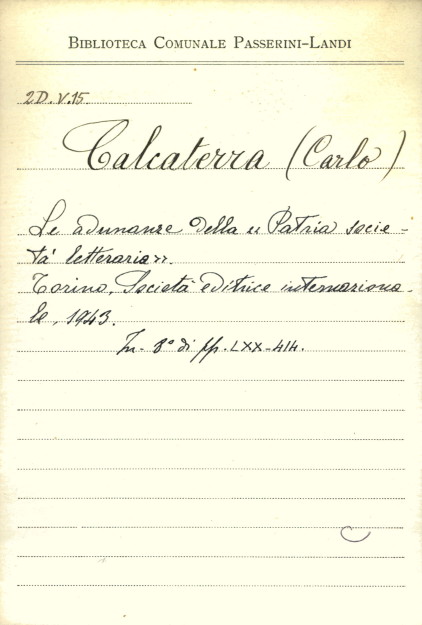 BIBLIOTECA COMUNALE PASSERINI-LANDI
2D. V. 15
Calcaterra (Carlo)
Le adunanze della « Patria socie-
tà letteraria».
Torino, Società editrice internaziona-
le, 1943.
In- 8° di pp. LXX-414.